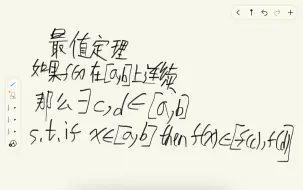 最值定理
如果f(x)在[a,b]上连续
那么∃c,d∈[a,b]
s.t. if x∈[a,b] then f(x)∈[f(c),f(d)]